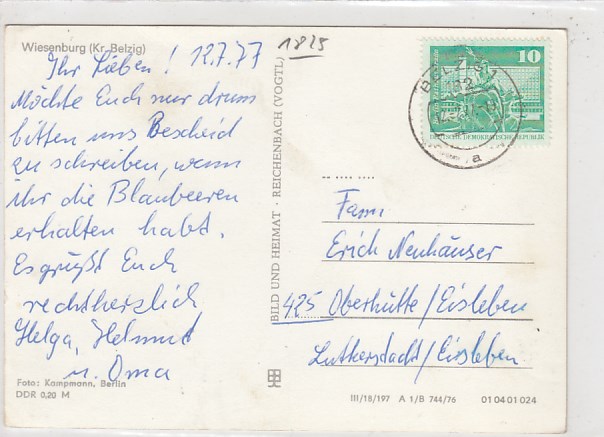 Wiesenburg (Kr. Belzig)
1825
Ihr Lieben! 12.7.77
Möchte Euch nur drum
bitten uns Bescheid
zu schreiben, wenn
ihr die Blaubeeren
erhalten habt.
Es grüßt Euch
rechtherzlich
Helga, Helmut
u. Oma
Foto: Kampmann, Berlin
DDR 0,20 M
BILD UND HEIMAT · REICHENBACH (VOGTL)
10
DEUTSCHE DEMOKRATISCHE REPUBLIK
BELZIG 1
a
Fam
Erich Neuhäuser
425 Oberhütte/Eisleben
Lutherstadt/Eisleben
III/18/197 A 1/B 744/76 01 04 01 024